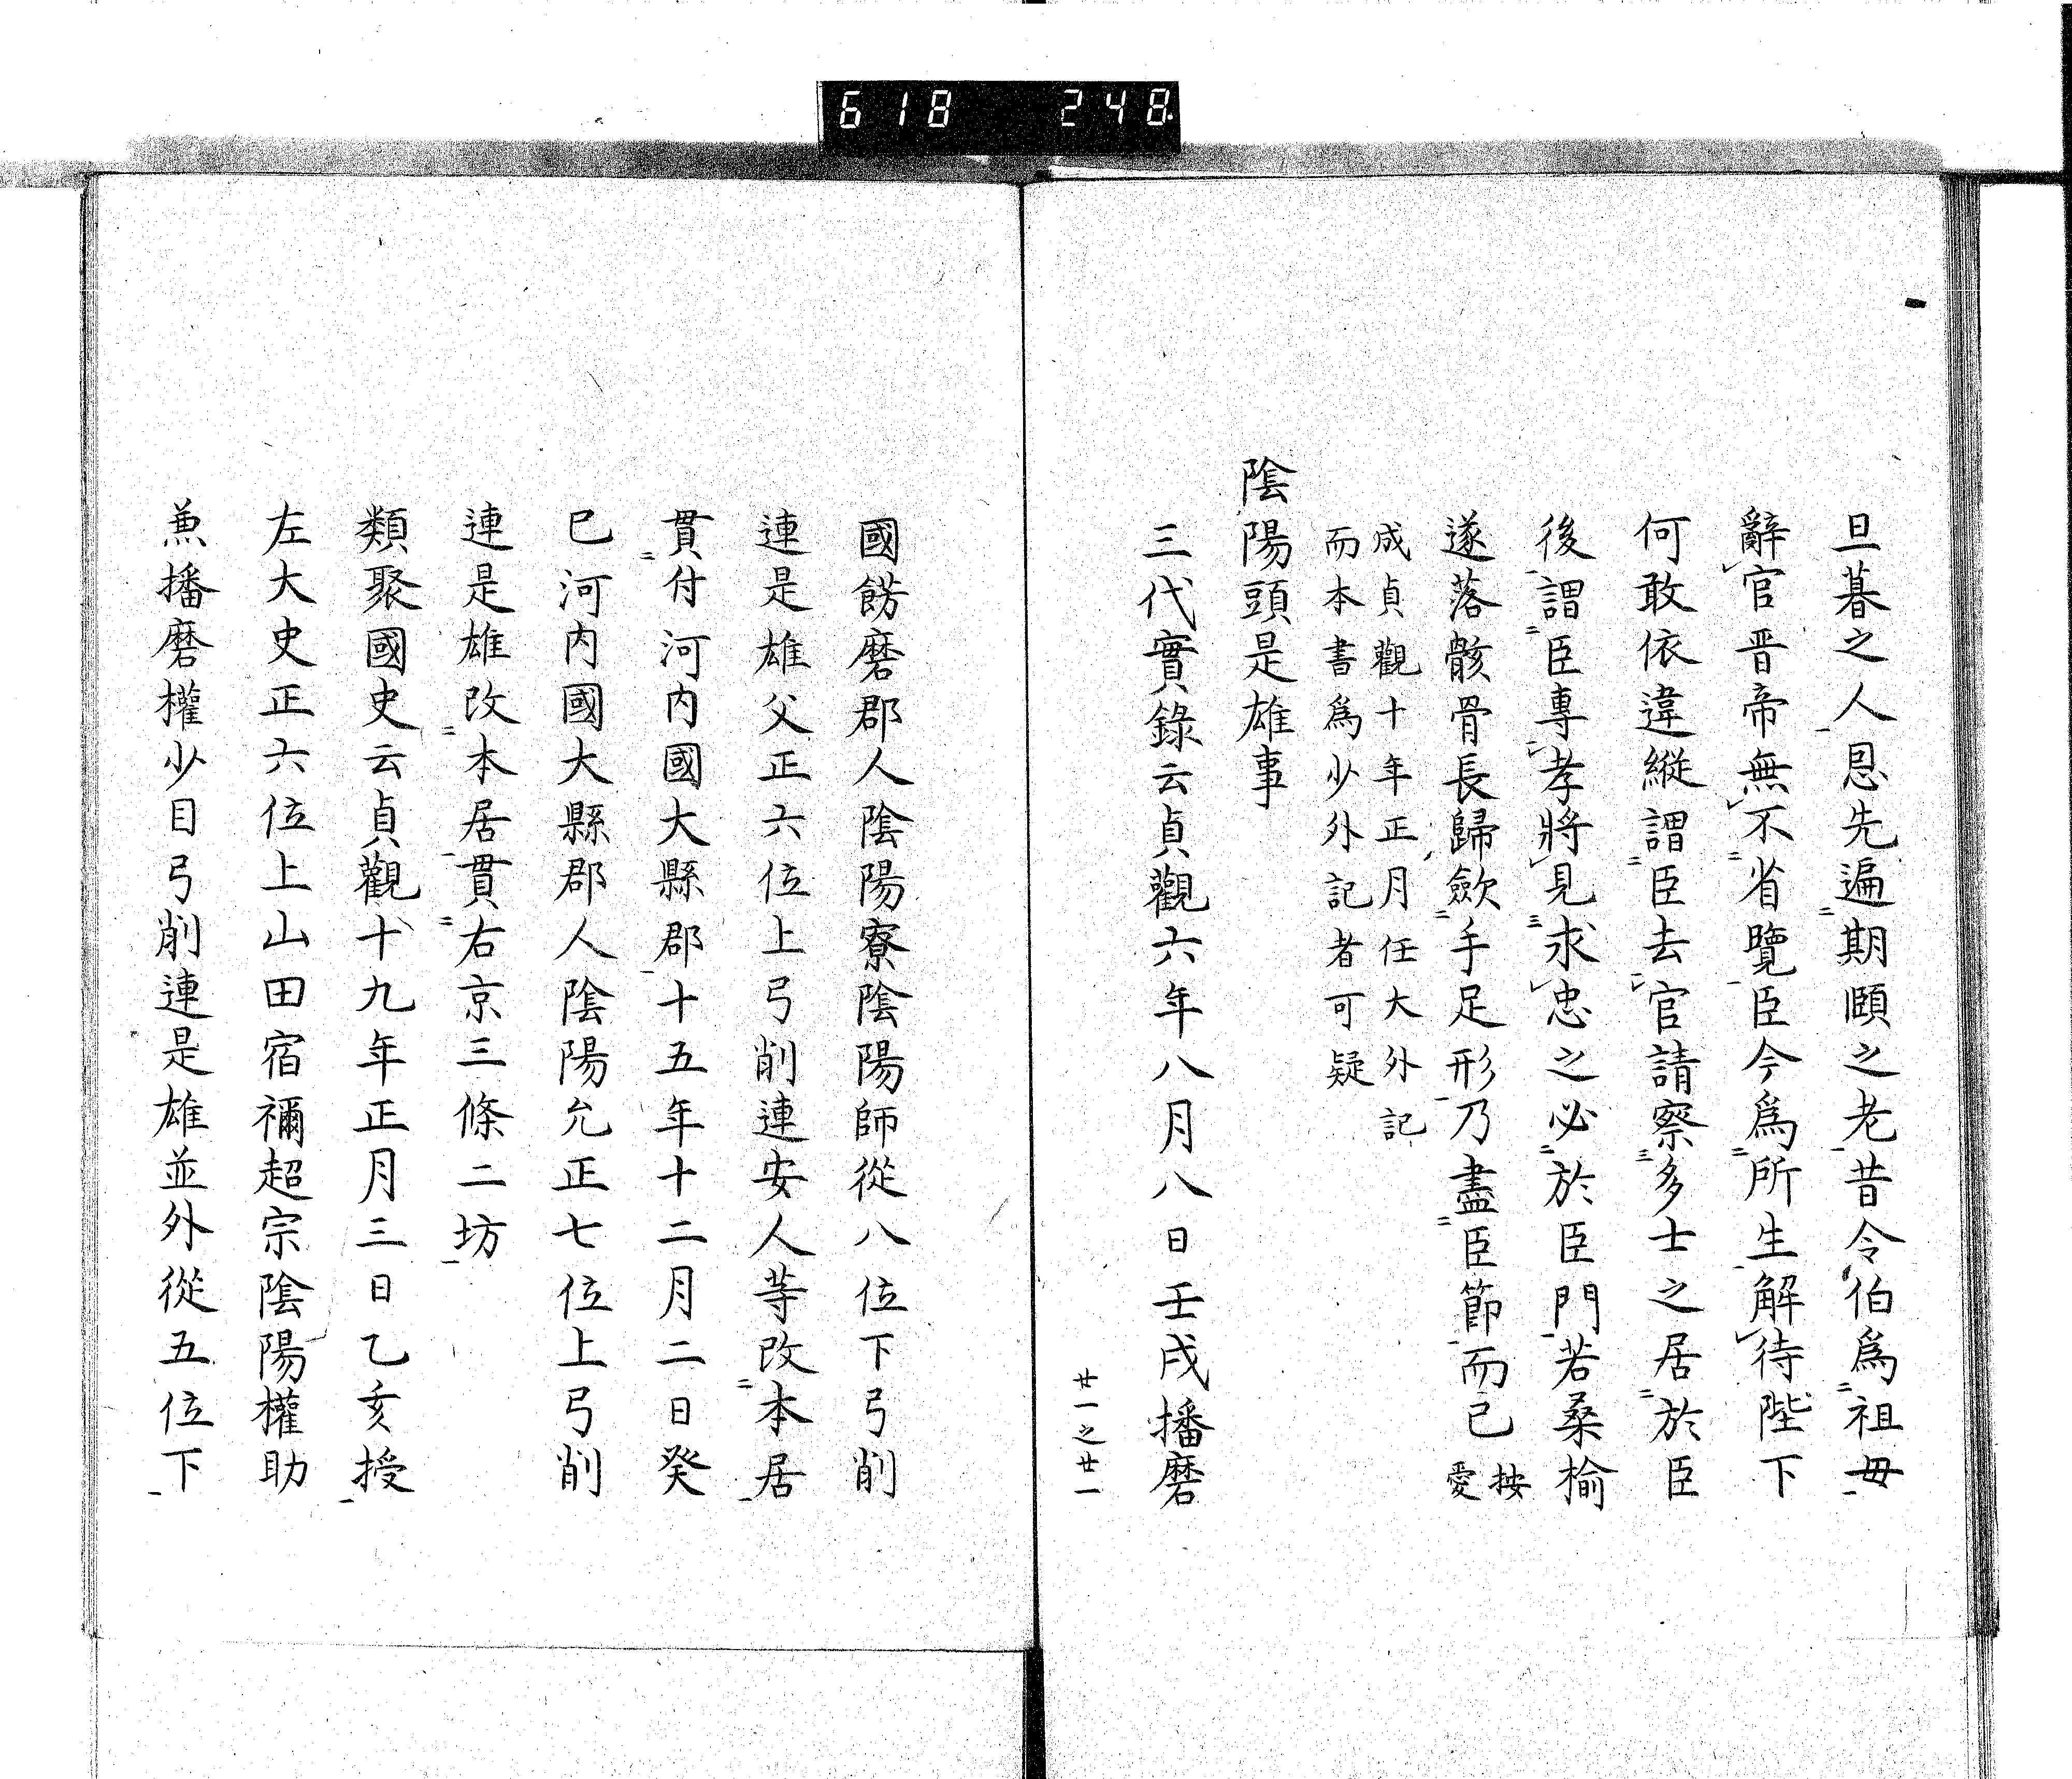 618 248
旦暮之人恩先遍期頤之老昔令伯爲祖毋
辭官晋帝無不省覽臣今爲所生解待陛下
何敢依違縱謂臣去官請察多士之居於臣
後謂臣專孝將見求忠之必於臣門若桑榆
遂落骸骨長歸歛手足形乃盡臣節而已按愛
成貞觀十年正月任大外記
而本書爲少外記者可疑
陰陽頭是雄事
三代實錄云貞觀六年八月八日壬戌播磨
廿一之廿一
國餝磨郡人陰陽寮陰陽師從八位下弓削
連是雄父正六位上弓削連安人等改本居
貫付河内國大縣郡十五年十二月二日癸
巳河内國大縣郡人陰陽允正七位上弓削
連是雄改本居貫右京三條二坊
類聚國史云貞觀十九年正月三日乙亥授
左大史正六位上山田宿禰超宗陰陽權助
兼播磨權少目弓削連是雄並外從五位下